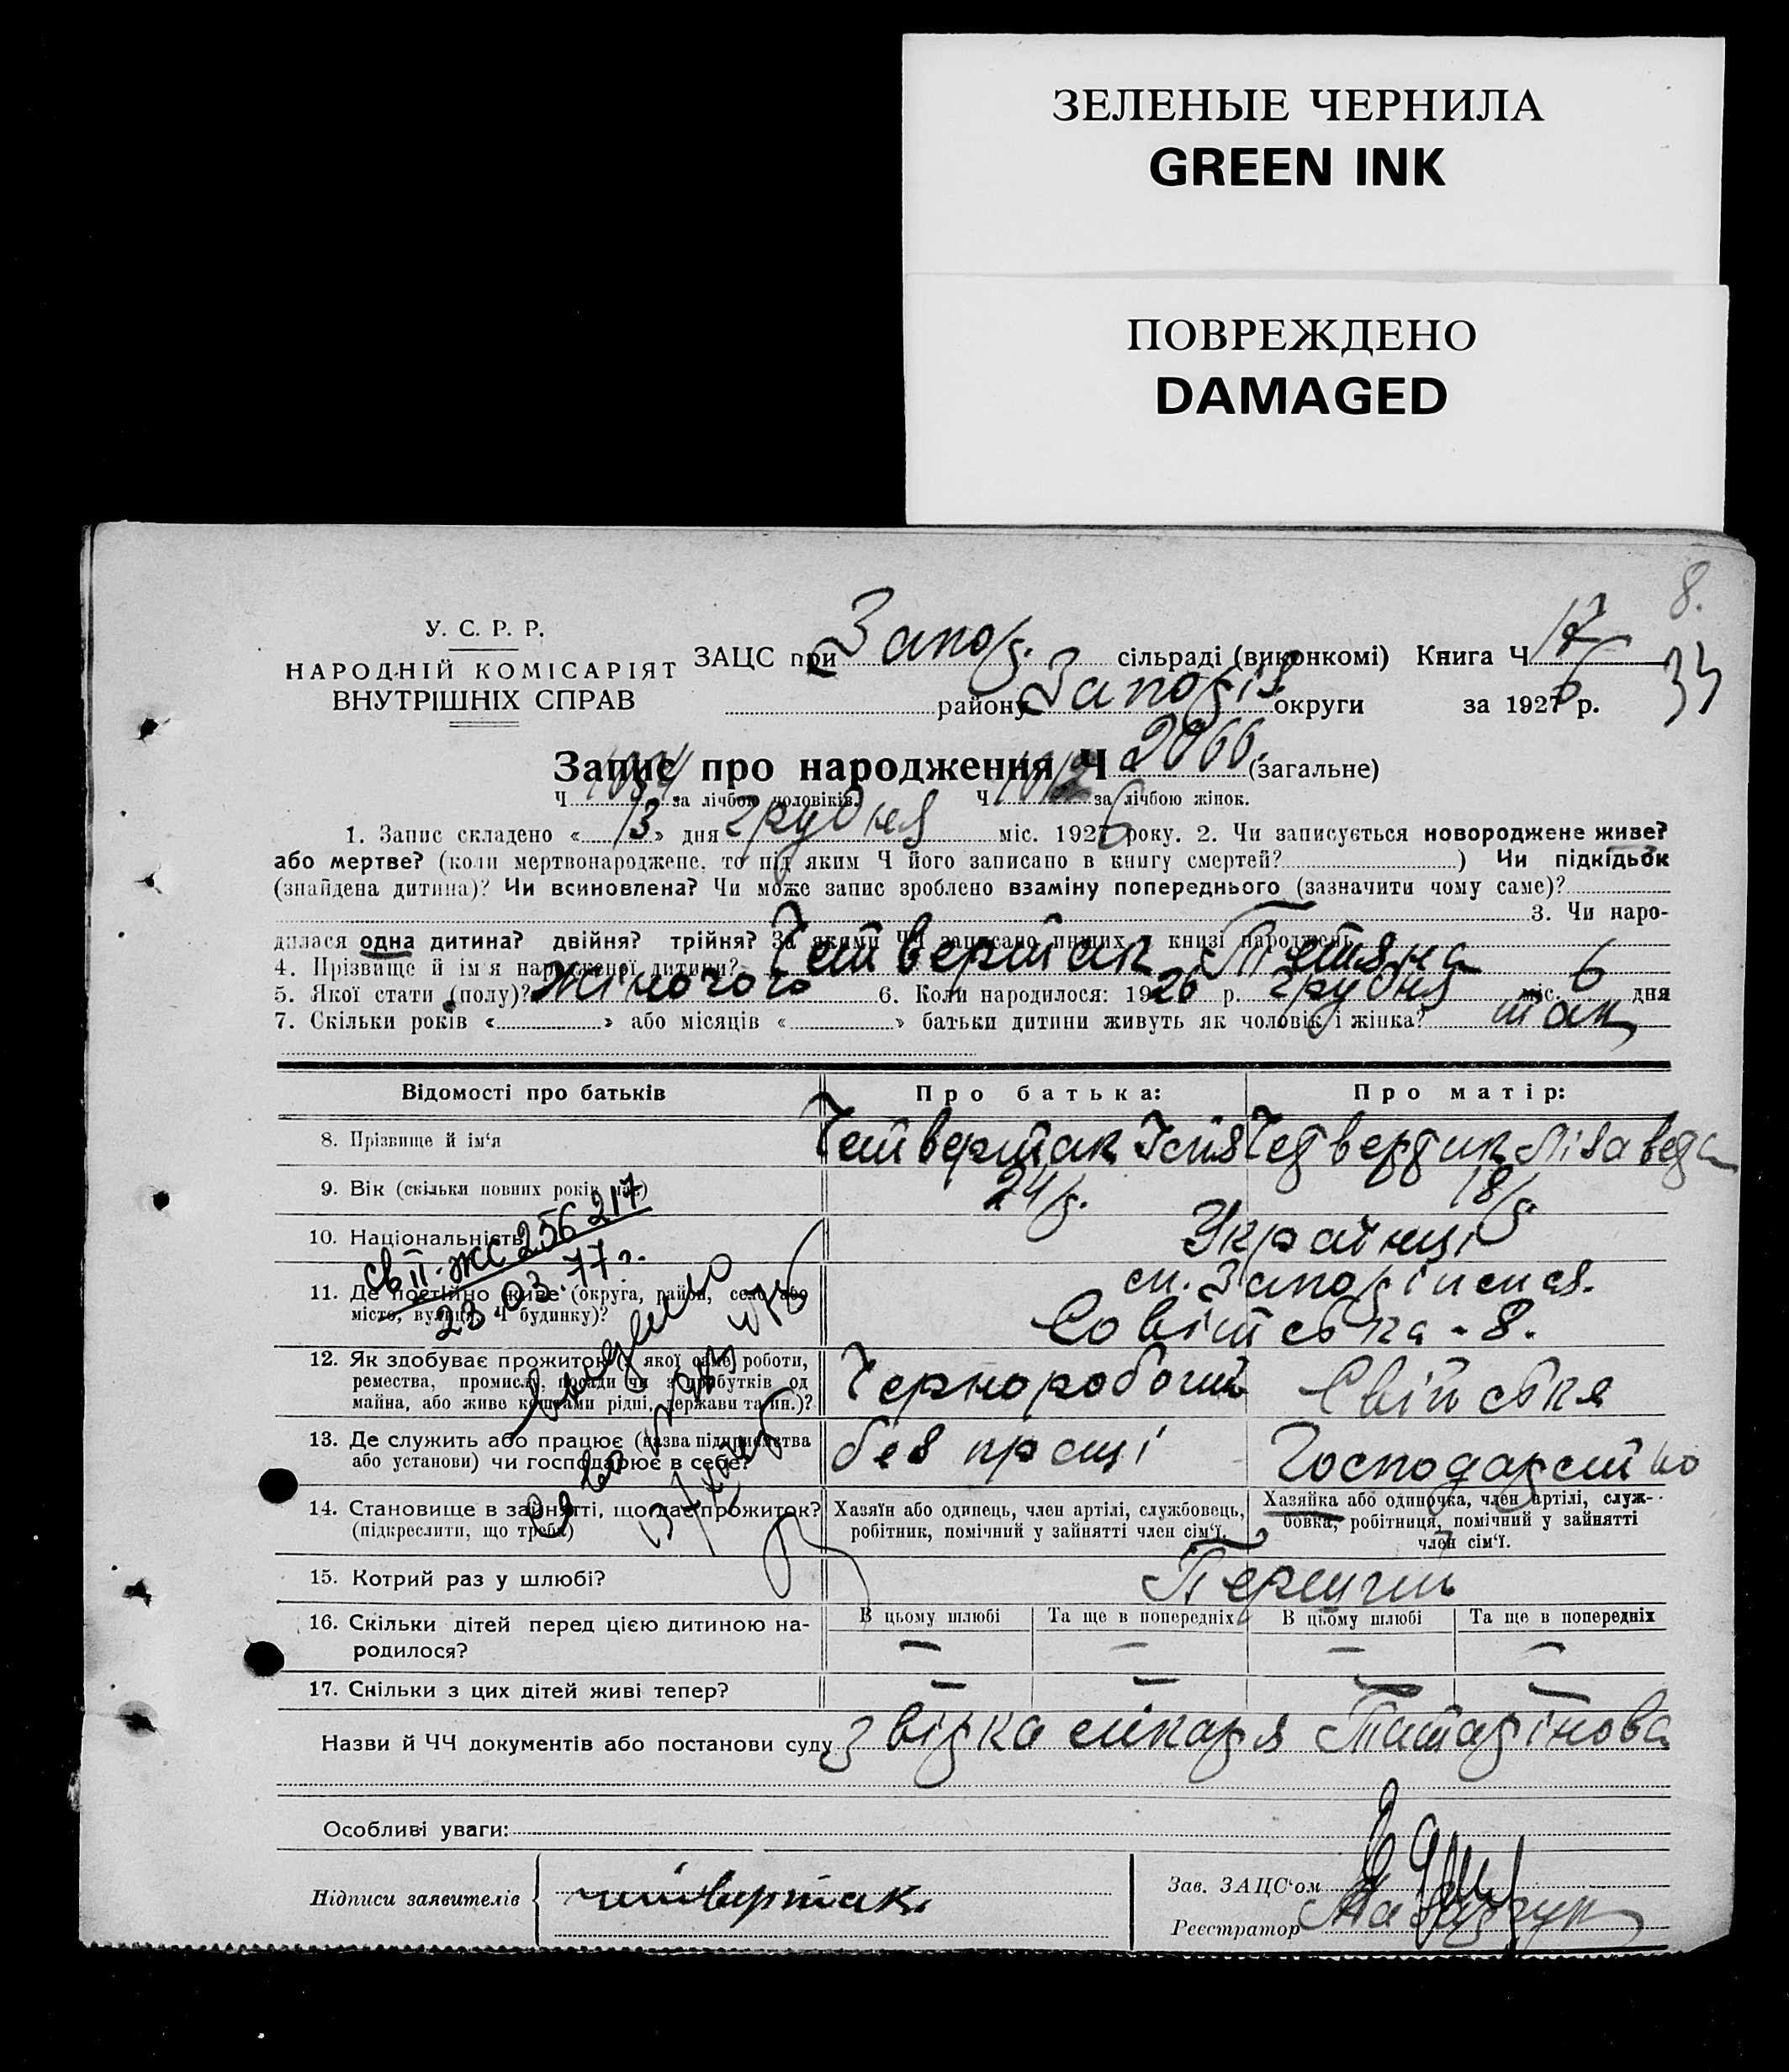 ЗЕЛЕНЫЕ ЧЕРНИЛА
GREEN INK
ПОВРЕЖДЕНО
DAMAGED
8.
У. С. Р. Р.
НАРОДНІЙ КОМІСАРІЯТ
ВНУТРІШНІХ СПРАВ
ЗАЦС при Запор. сільраді (виконкомі) Книга Ч 17
району Запоріз округи за 1926 р.
Запис про народження Ч 2066 (загальне)
Ч 1054 за лічбою чоловіків. Ч 1012 за лічбою жінок.
1. Запис складено «13» дня грудня міс. 1926 року. 2. Чи записується новороджене живе?
або мертве? (коли мертвонароджене, то під яким Ч його записано в книгу смертей? ) Чи підкідьок
(знайдена дитина)? Чи всиновлена? Чи може запис зроблено взаміну попереднього (зазначити чому саме)?
3. Чи наро-
дилася одна дитина? двійня? трійня? За якими ЧЧ записано инших у книзі народжень
4. Прізвище й ім'я народженої дитини? Четвертак Тетяна
5. Якої стати (полу)? Жіночого 6. Коли народилося: 1926 р. грудня міс. 6 дня
7. Скільки років « » або місяців « » батьки дитини живуть як чоловік і жінка? так
Відомості про батьків Про батька: Про матір:
8. Прізвище й ім'я Четвертак Четвертак Лізавета
9. Вік (скільки повних років має) 24 р. 18 р.
10. Національність Українці
св II-ЖС 256 217
23.03.77 г.
11. Де постійно живе (округа, район, село або
місто, вулиця, Ч будинку)?
ст. Запоріжжя.
Совітська - 8.
12. Як здобуває прожиток (з якої саме роботи,
ремества, промислу, посади чи з прибутків од
майна, або живе коштами рідні, держави та ин.)?
Чорноробочий Свійська
13. Де служить або працює (назва підприємства
або установи) чи господарює в себе?
без праці Господарство
14. Становище в зайнятті, що дає прожиток?
(підкреслити, що треба)
Хазяїн або одинець, член артілі, службовець,
робітник, помічний у зайнятті член сім'ї.
Хазяйка або одиночка, член артілі, служ-
бовка, робітниця, помічний у зайнятті
член сім'ї.
15. Котрий раз у шлюбі? Перший
16. Скільки дітей перед цією дитиною на-
родилося?
В цьому шлюбі Та ще в попередніх В цьому шлюбі Та ще в попередніх
— — — —
17. Скільки з цих дітей живі тепер? — — — —
Назви й ЧЧ документів або постанови суду звідка лікаря Татарінова
Особливі уваги:
Підписи заявителів четвертак
Зав. ЗАЦС'ом
Реєстратор